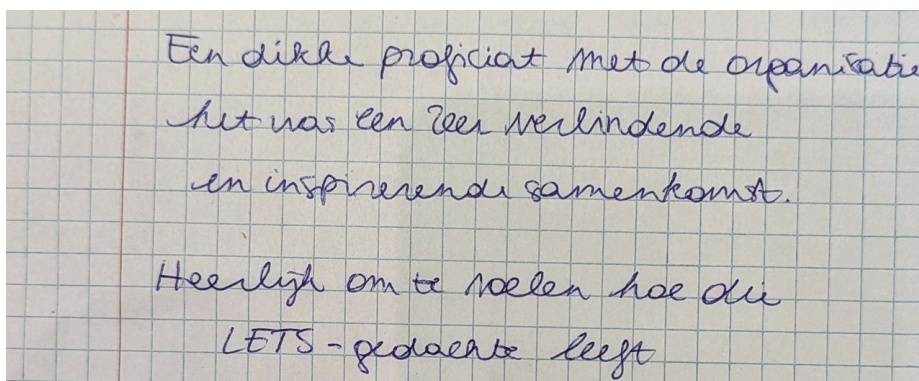 Een dikke proficiat met de organisatie
het was een zeer verbindende
en inspirerende samenkomst.
Heerlijk om te voelen hoe die
LETS-gedachte leeft